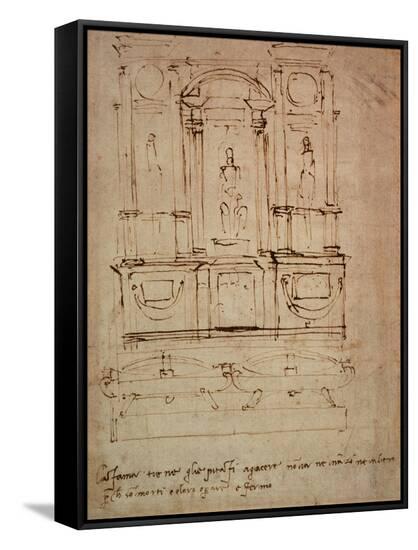 La fama tiene gli epitafi a giacere no va ne inanzi ne indietro
p ch so morti e loro operare e fermo